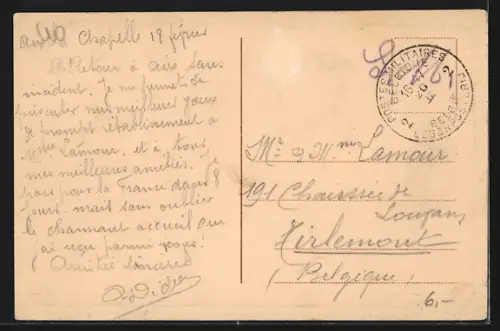 Chapelle 18 février
Retour à Aix sans
incident. Je me permets de
présenter mes meilleurs vœux
de prompt rétablissement à
Mme Lamour, et à tous,
mes meilleures amitiés. Je
pars pour la France dans 8
jours. mais sans oublier
le charmant accueil que
j'ai reçu parmi vous!
Amitiés sincères
POSTES MILITAIRES
BELGIQUE
2
BELGIE
LEGERPOST
2
Mr & Mme Lamour
191 Chaussée de
Louvain
Tirlemont
(Belgique)
6,-